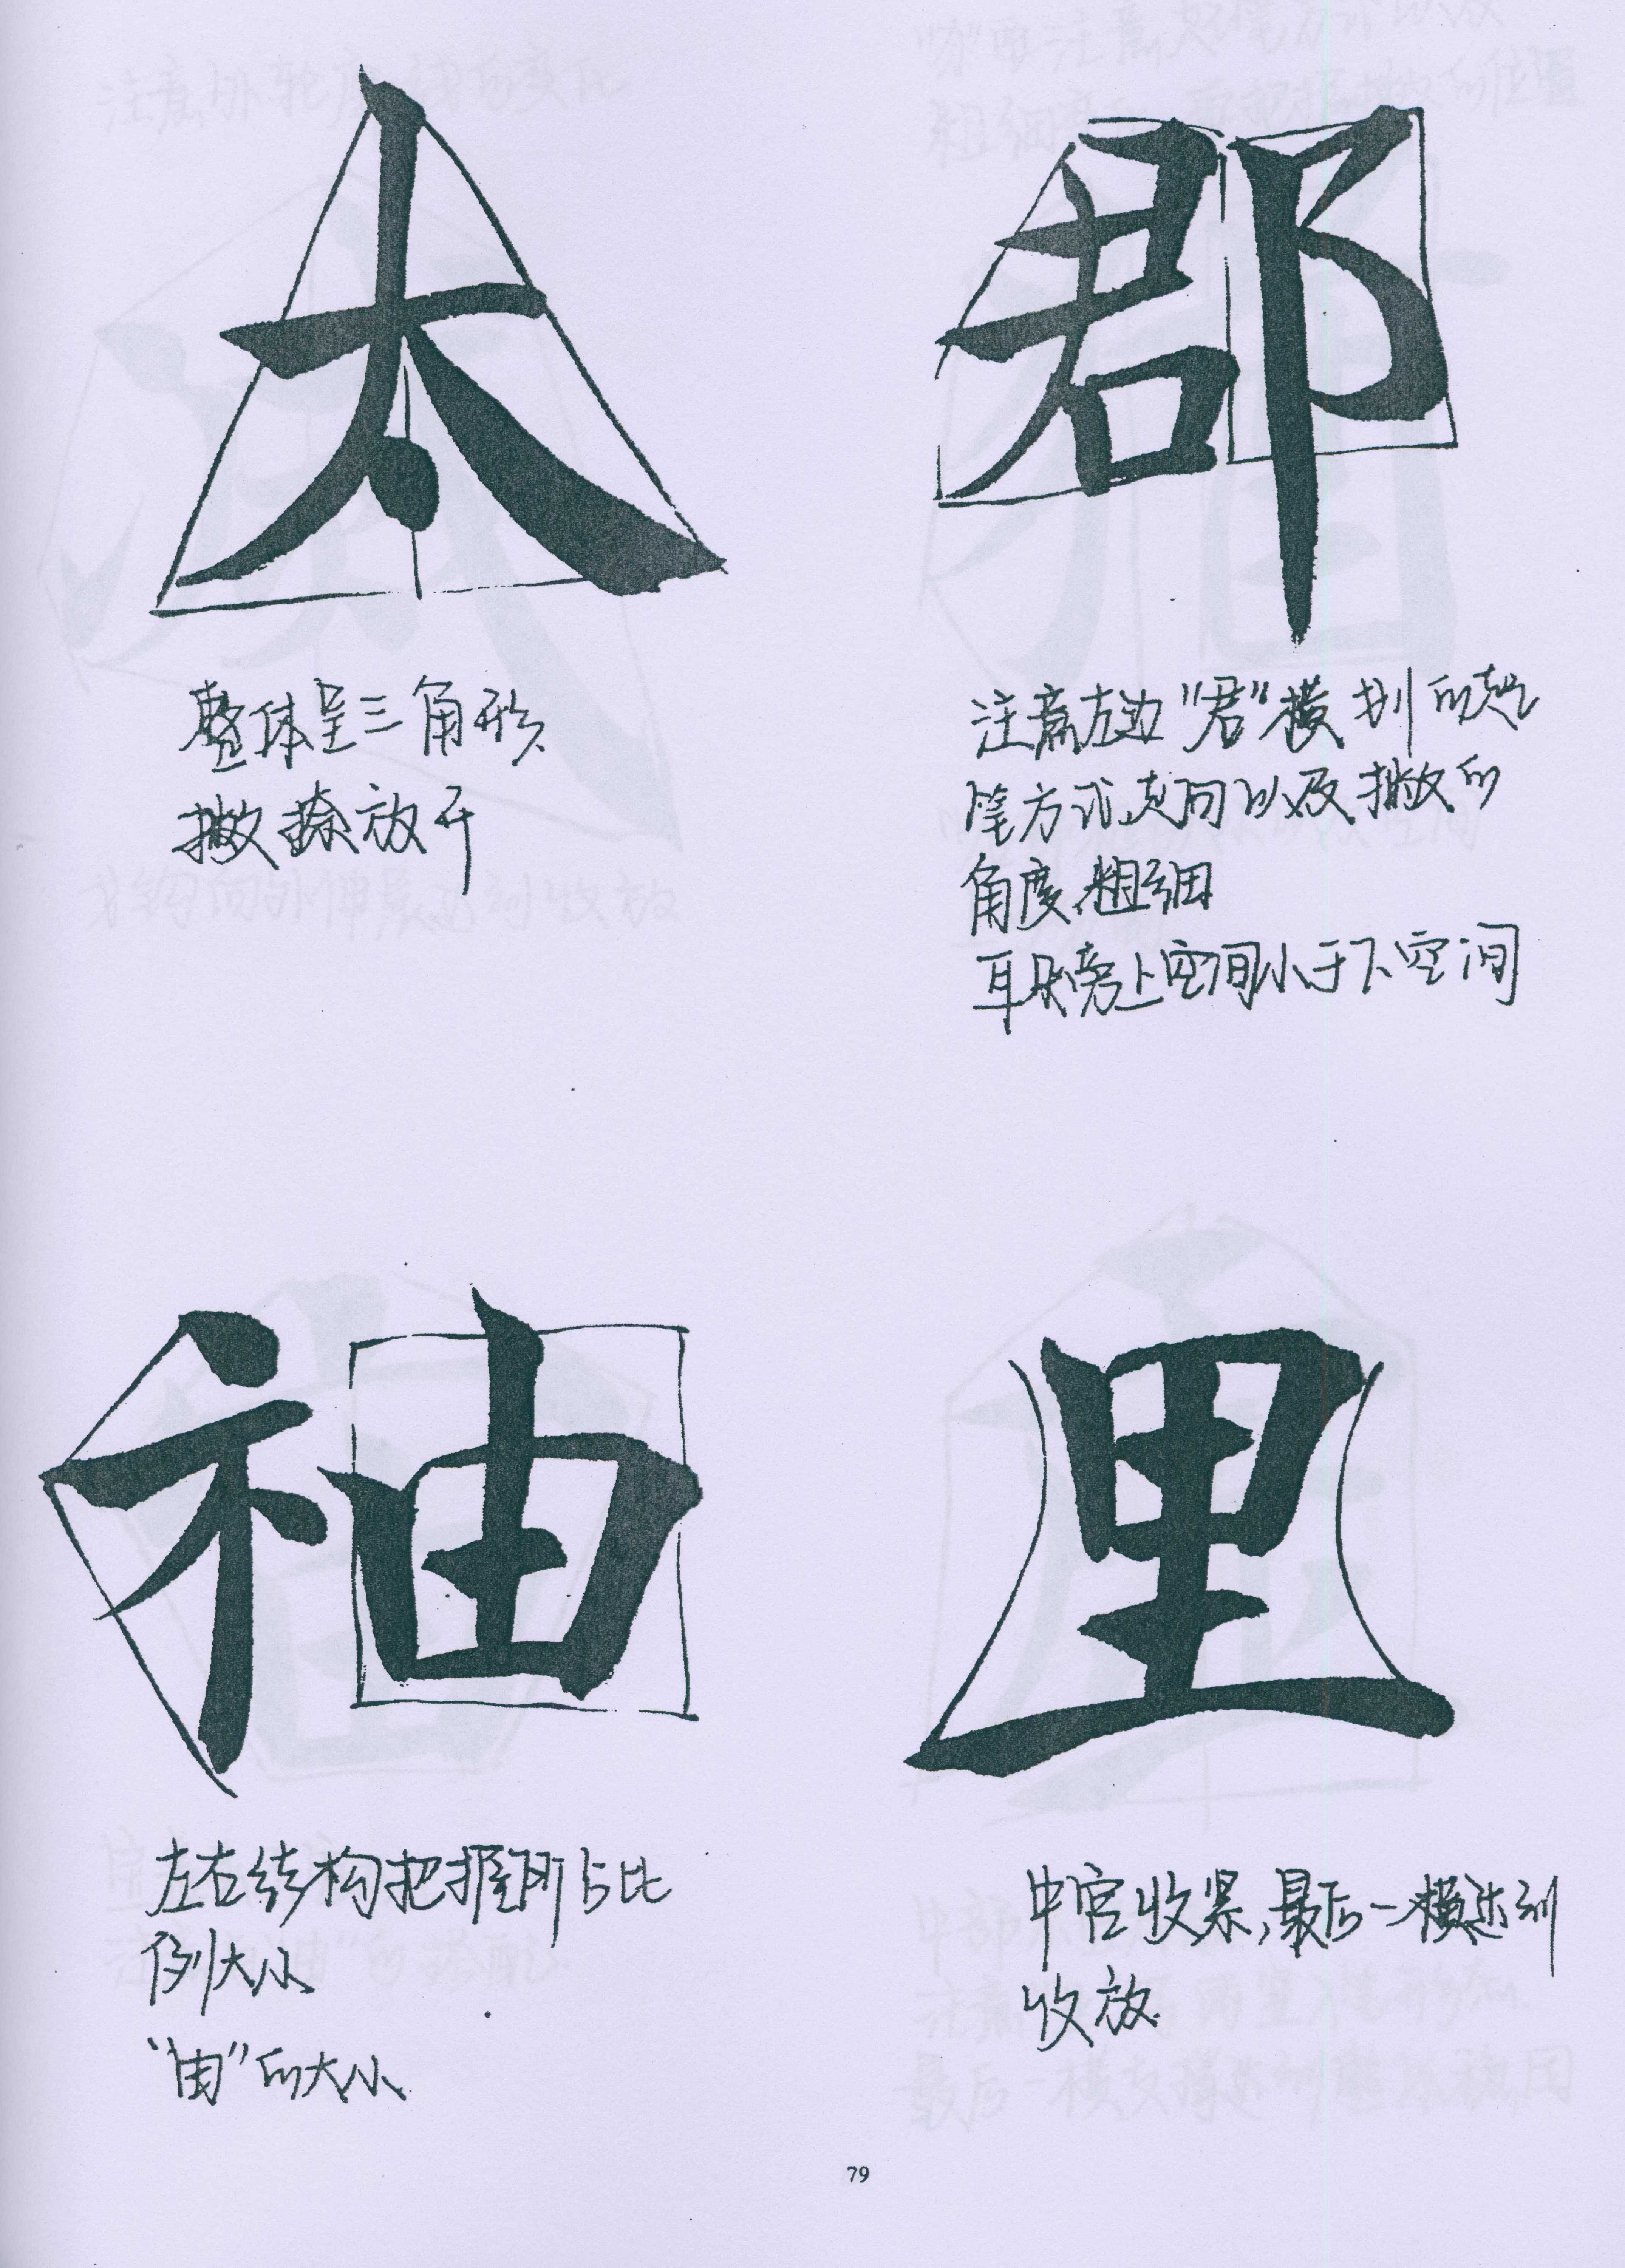 太
整体呈三角形
撇捺放开
郡
注意左边“君”横划的起
笔方式、走向以及撇的
角度、粗细
耳朵旁上空间小于下空间
䄂
左右结构把握所占比
例大小
“由”的大小
里
中宫收紧,最后一横达到
收放
79